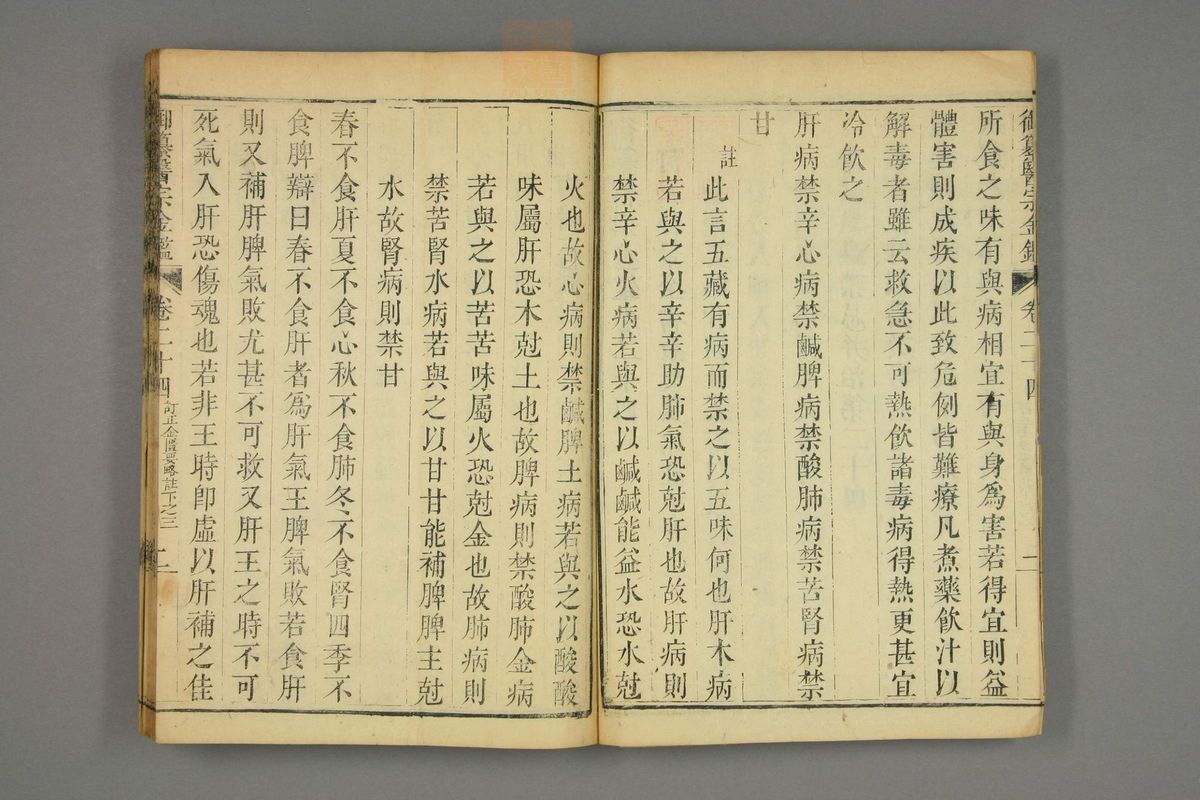 御纂醫宗金鑑 卷二十四
所食之味有與病相宜有與身為害若得宜則益
體害則成疾以此致危例皆難療凡煮藥飲汁以
解毒者雖云救急不可熱飲諸毒病得熱更甚宜
冷飲之
肝病禁辛心病禁鹹脾病禁酸肺病禁苦腎病禁
甘
註此言五藏有病而禁之以五味何也肝木病
若與之以辛辛助肺氣恐尅肝也故肝病則
禁辛心火病若與之以鹹鹹能益水恐水尅
火也故心病則禁鹹脾土病若與之以酸酸
味屬肝恐木尅土也故脾病則禁酸肺金病
若與之以苦苦味屬火恐尅金也故肺病則
禁苦腎水病若與之以甘甘能補脾脾主尅
水故腎病則禁甘
春不食肝夏不食心秋不食肺冬不食腎四季不
食脾辯曰春不食肝者為肝氣王脾氣敗若食肝
則又補肝脾氣敗尤甚不可救又肝王之時不可
死氣入肝恐傷魂也若非王時即虛以肝補之佳
御纂醫宗金鑑 卷二十四 訂正金匱要略註下之三 二